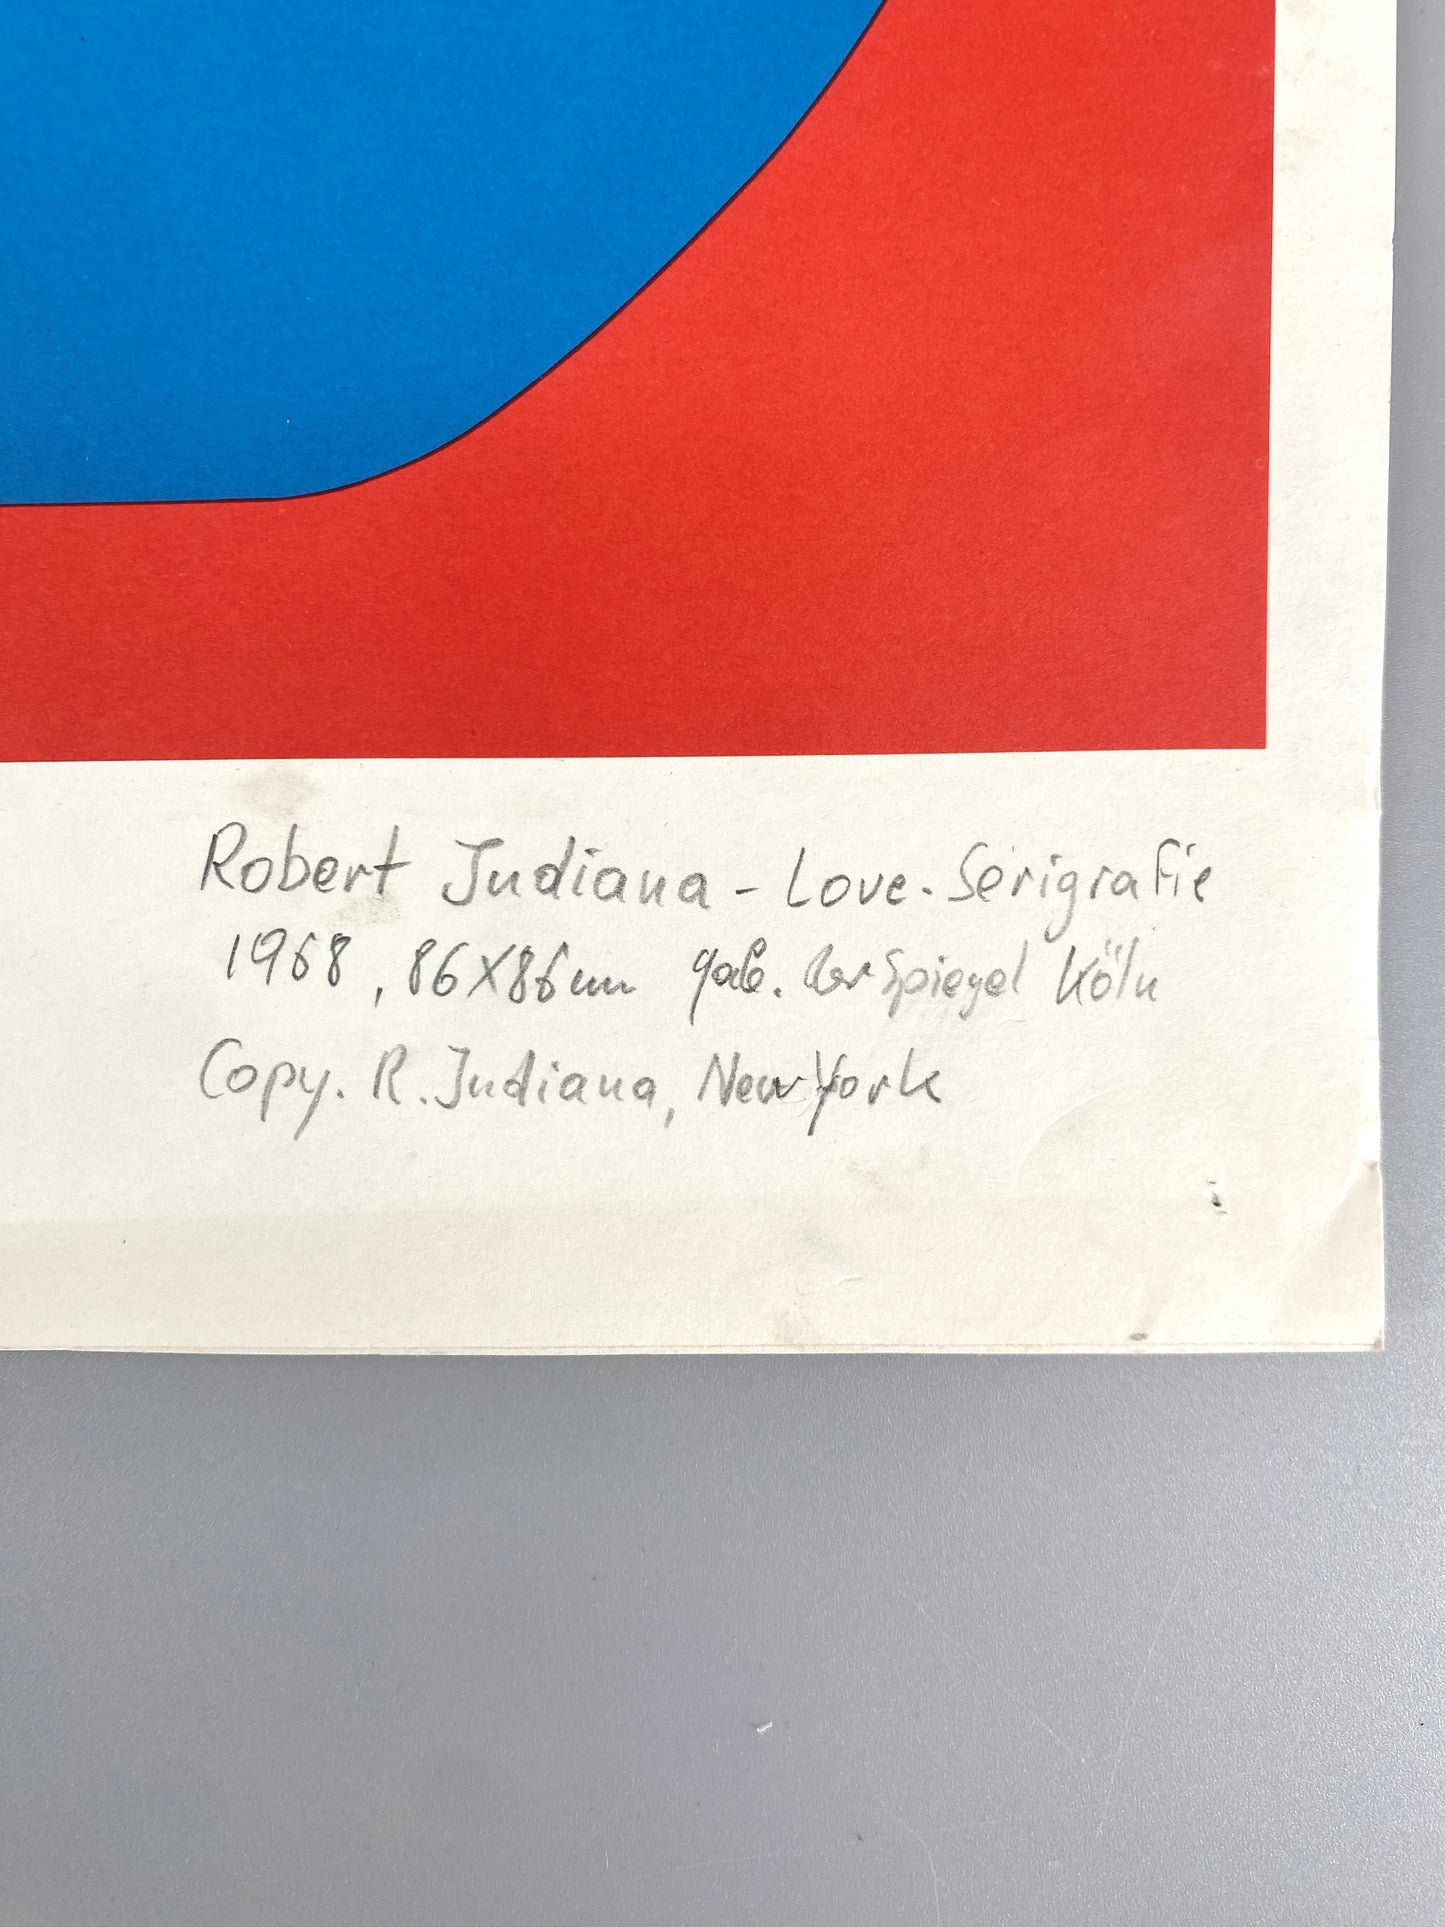 Robert Indiana - Love - Serigrafie
1968, 86x86cm Gal. Der Spiegel Köln
Copy. R. Indiana, New York